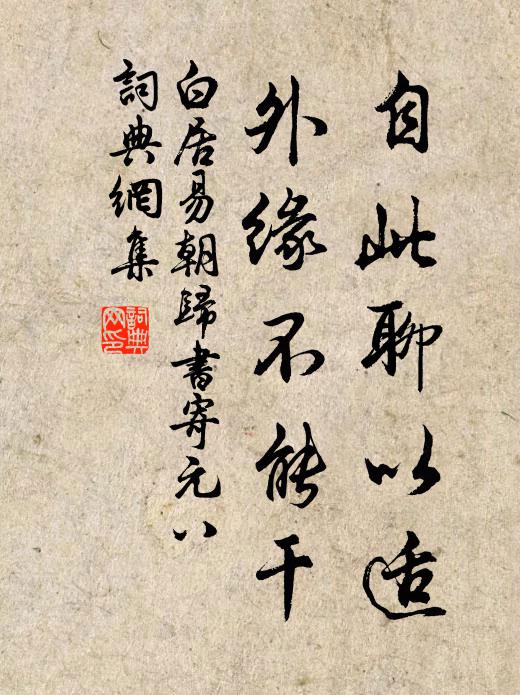 自此聊以适
外緣不能干
白居易朝歸書寄元八
詞典網集
詞典
网印